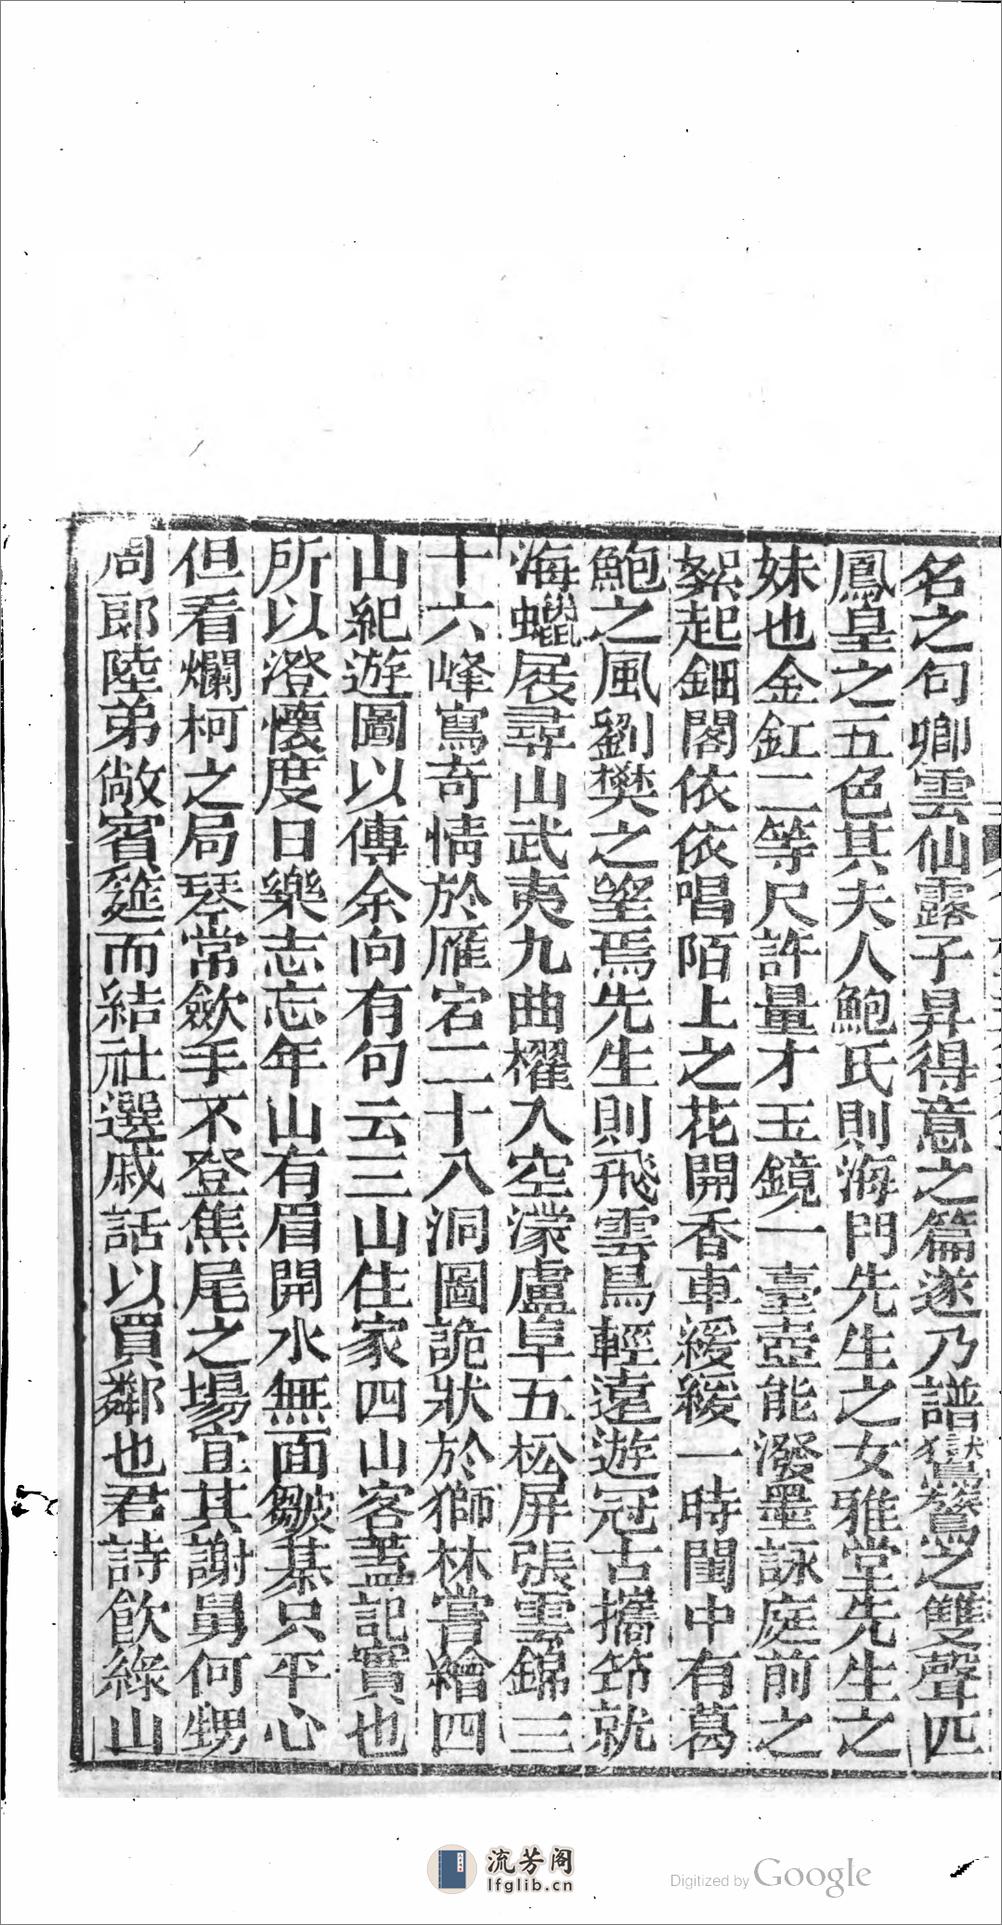 名之句卿雲仙露子昇得意之篇遂乃譜鸑鷟之雙聲匹
鳳皇之五色其夫人鮑氏則海門先生之女雅堂先生之
妹也金釭二等尺許量才玉鏡一臺壺能潑墨詠庭前之
絮起鈿閣依依唱陌上之花開香車緩緩一時閨中有葛
鮑之風劉樊之望焉先生則飛雲鳥輕遠遊冠古攜笻就
海蠟屐尋山武夷九曲櫂入空濛廬阜五松屏張雲錦三
十六峰寫奇情於雁宕二十八洞圖詭狀於獅林嘗繪四
山紀遊圖以傳余向有句云三山住家四山客蓋記實也
所以澄懷度日樂志忘年山有眉開水無面皺棊只平心
但看爛柯之局琴常斂手不登焦尾之場宜其謝舅何甥
周郎陸弟敞賓筵而結社選戚話以買鄰也君詩飲綠山
流芳阁
lfglib.cn
Digitized by Google